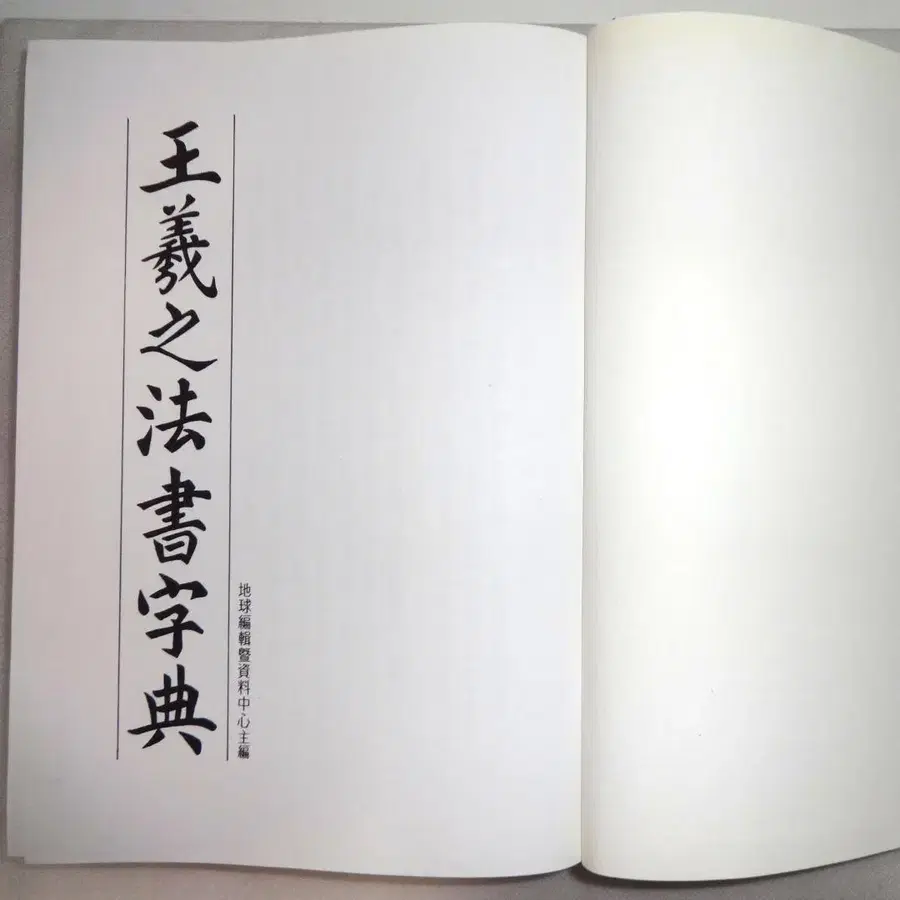 王羲之法書字典
地球編輯暨資料中心主編